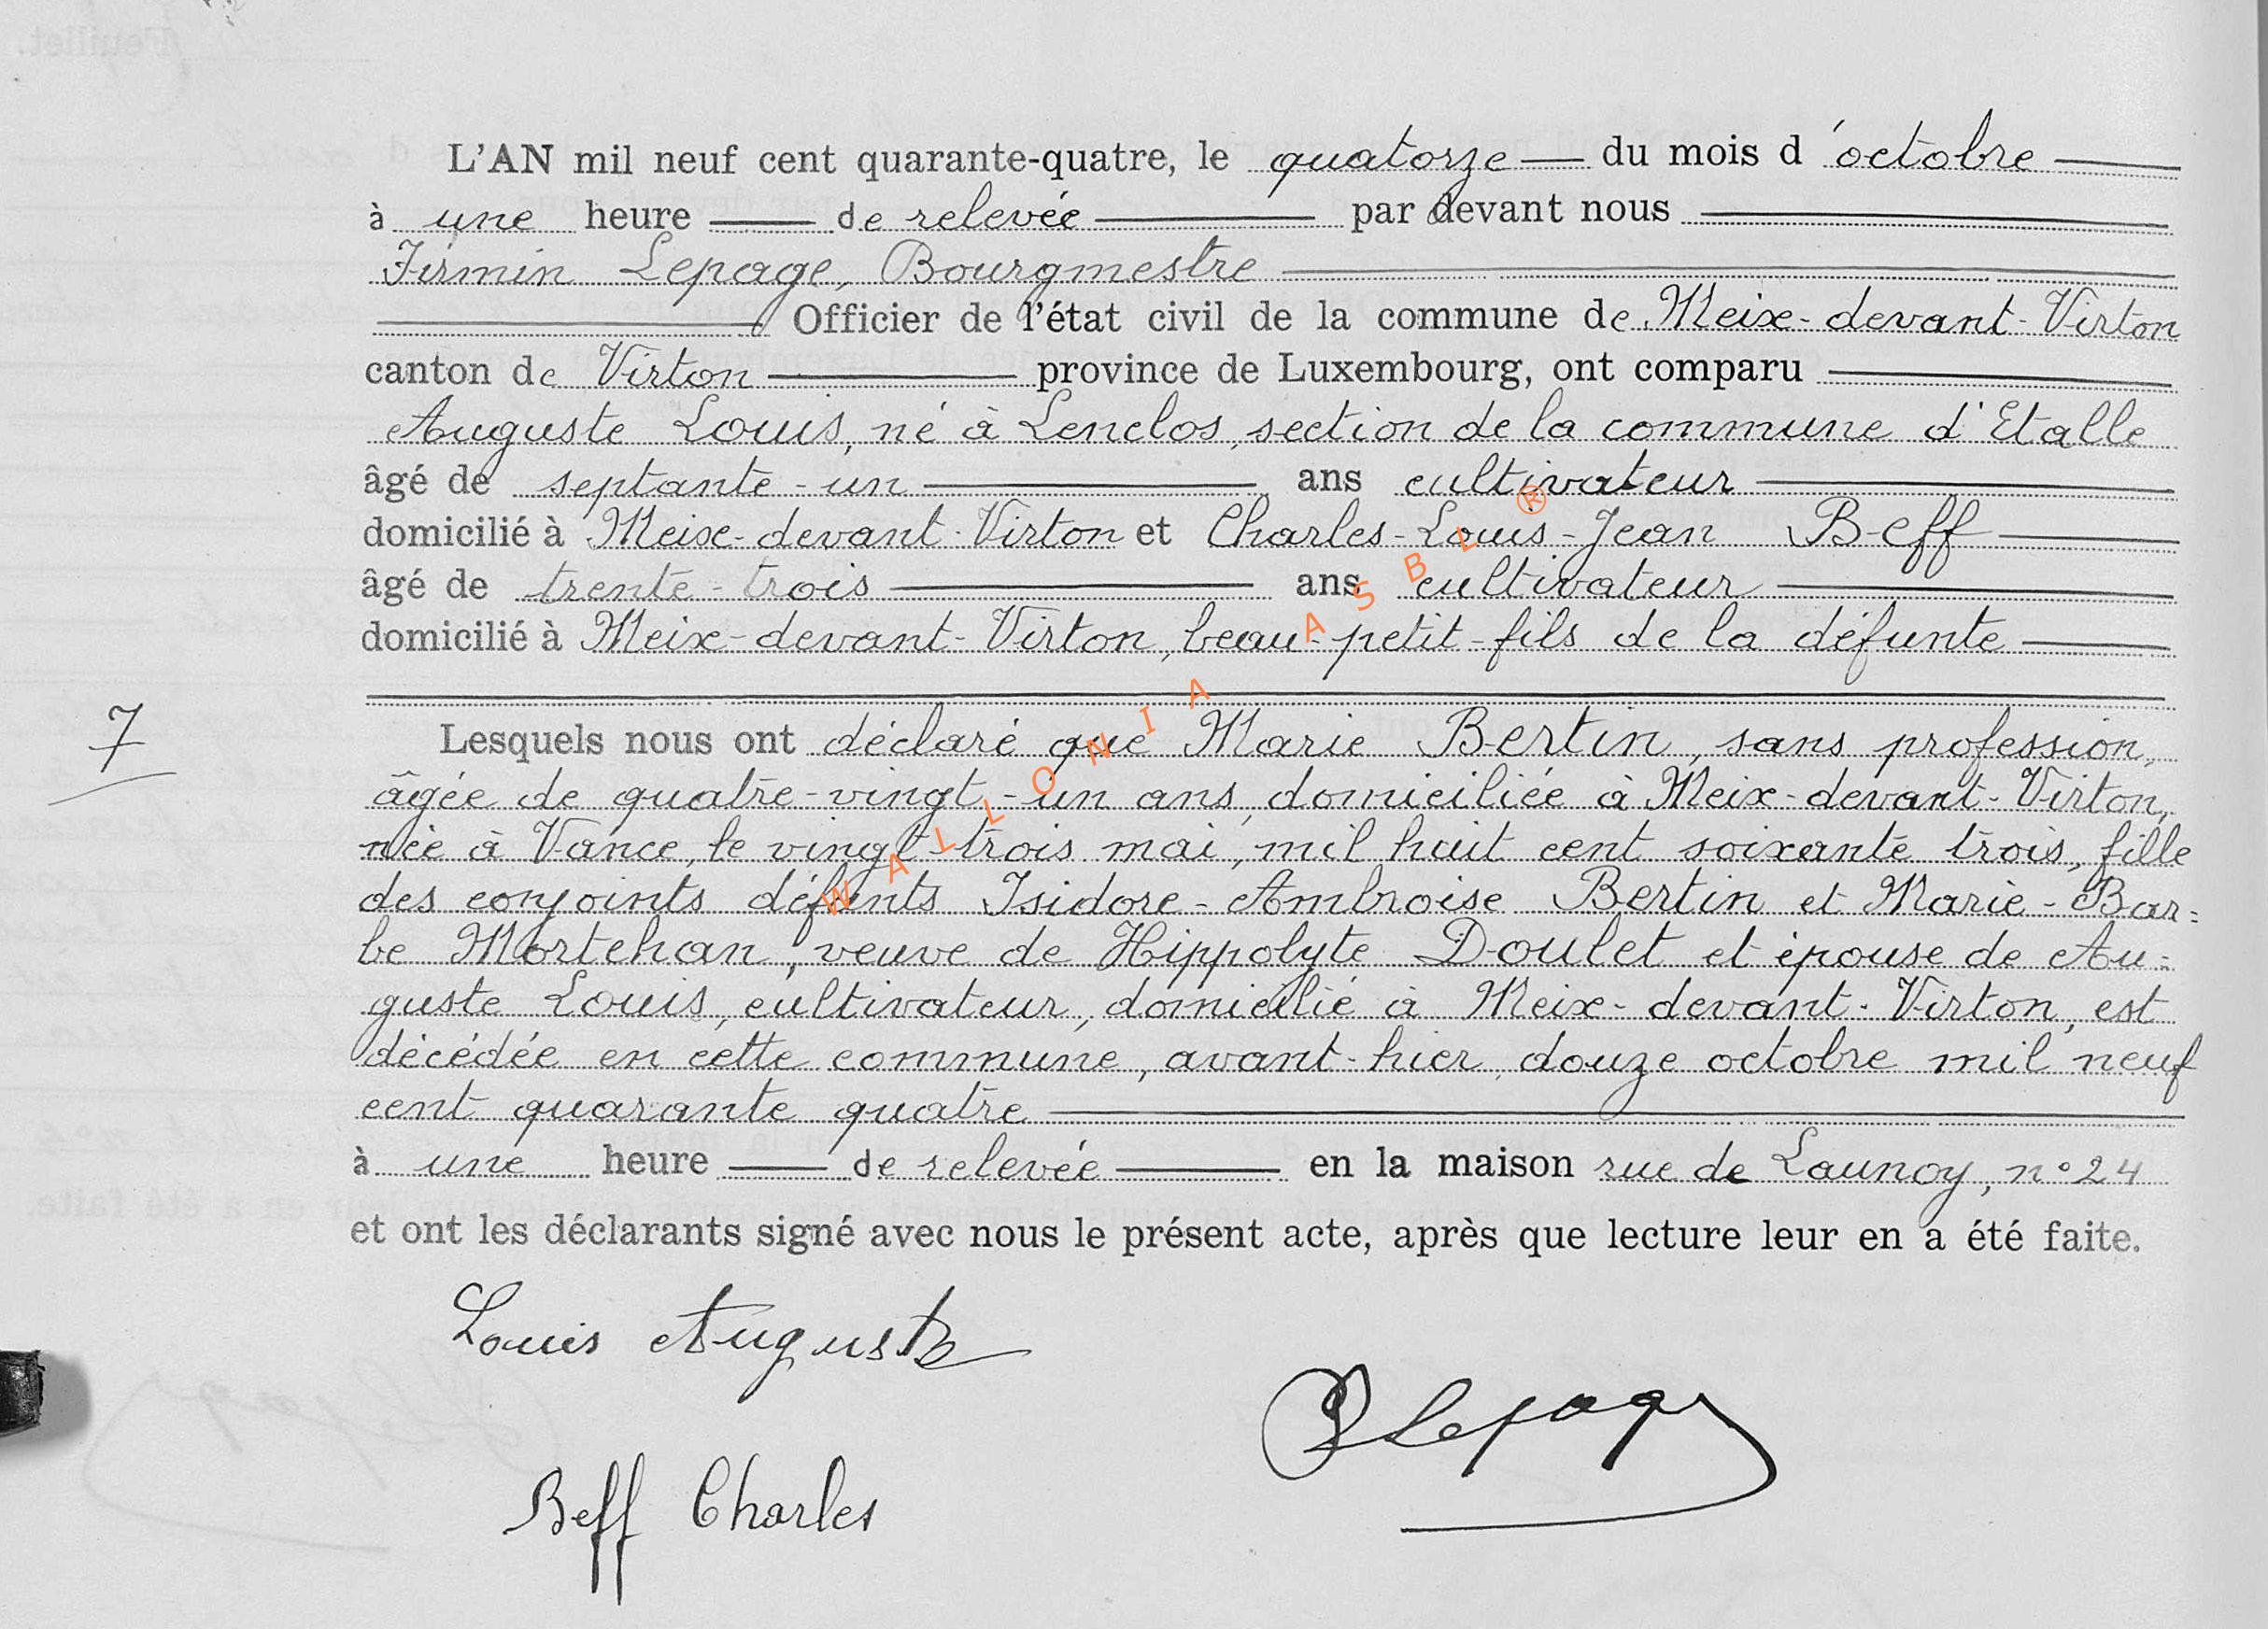 L'AN mil neuf cent quarante-quatre, le quatorze du mois d'octobre
à une heure de relevée par devant nous
Firmin Lepage, Bourgmestre
Officier de l'état civil de la commune de Meix-devant-Virton
canton de Virton province de Luxembourg, ont comparu
Auguste Louis, né à Lenclos, section de la commune d'Etalle
âgé de septante-un ans cultivateur
domicilié à Meix-devant-Virton et Charles-Louis-Jean Beff
âgé de trente-trois ans cultivateur
domicilié à Meix-devant-Virton, beau-petit-fils de la défunte
7
Lesquels nous ont déclaré que Marie Bertin, sans profession,
âgée de quatre-vingt-un ans, domiciliée à Meix-devant-Virton,
née à Vance, le vingt-trois mai, mil huit cent soixante trois, fille
des conjoints défunts Isidore-Ambroise Bertin et Marie-Bar=
be Mortehan, veuve de Hippolyte Doulet et épouse de Au=
guste Louis, cultivateur, domicilié à Meix-devant-Virton, est
décédée en cette commune, avant-hier, douze octobre mil neuf
cent quarante quatre
à une heure de relevée en la maison rue de Launoy, n° 24
et ont les déclarants signé avec nous le présent acte, après que lecture leur en a été faite.
Louis Auguste
Lepage
Beff Charles
WALLONIA ASBL ®